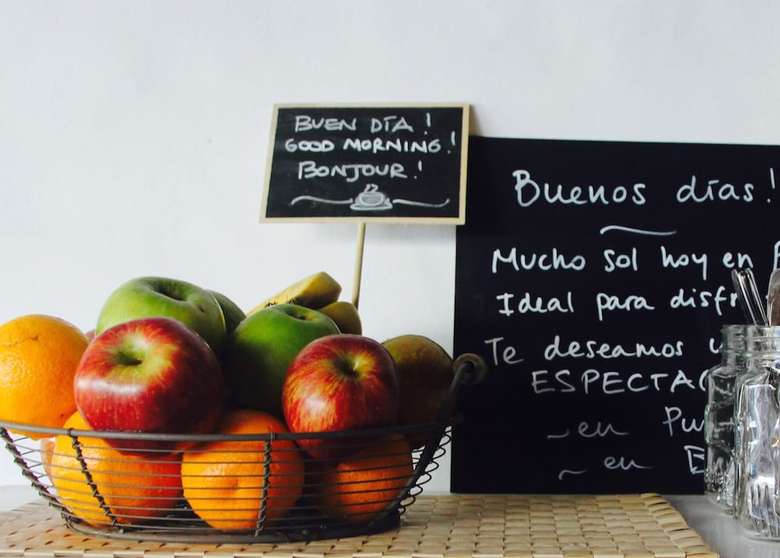 BUEN DÍA!
GOOD MORNING!
BONJOUR!
Buenos días!
Mucho sol hoy en
Ideal para disfr
Te deseamos
ESPECTA
en Pu
en